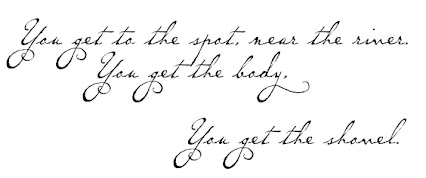 You get to the spot, near the river.
You get the body.
You get the shovel.